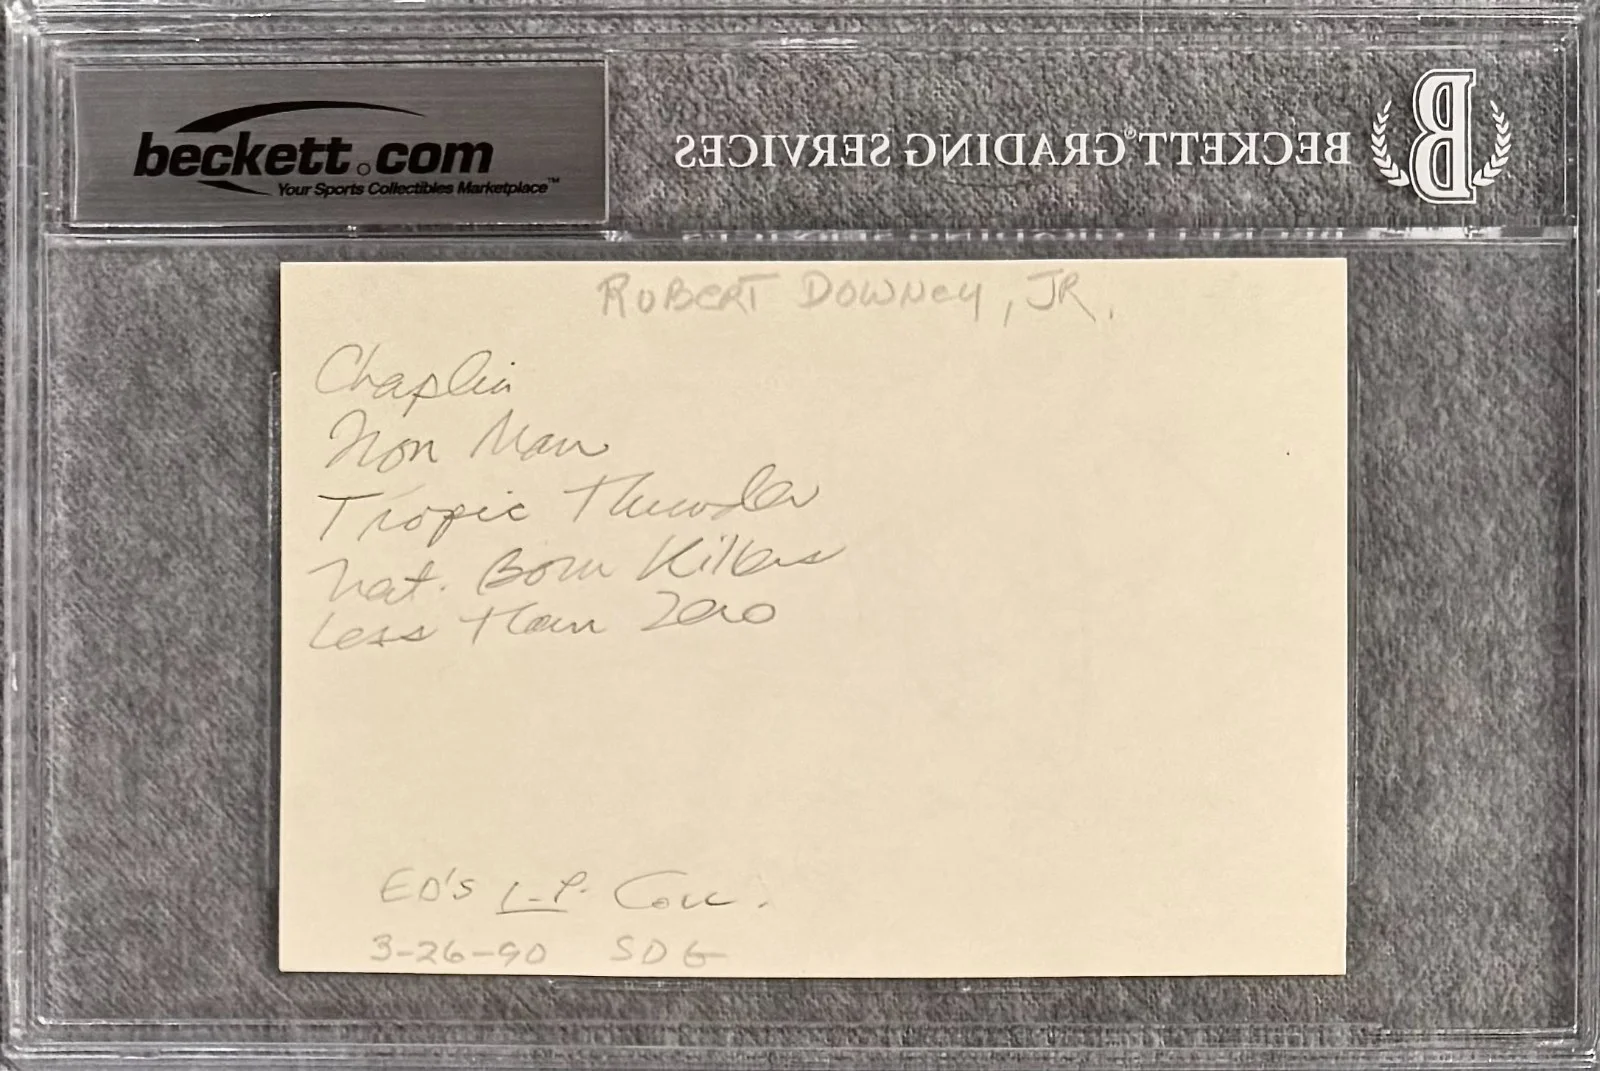 beckett.com
Your Sports Collectibles Marketplace™
BECKETT® GRADING SERVICES
B
ROBERT DOWNEY, JR.
Chaplin
Iron Man
Tropic Thunder
Nat. Born Killers
Less than Zero
ED'S L.P. Coll.
3-26-90 SDG